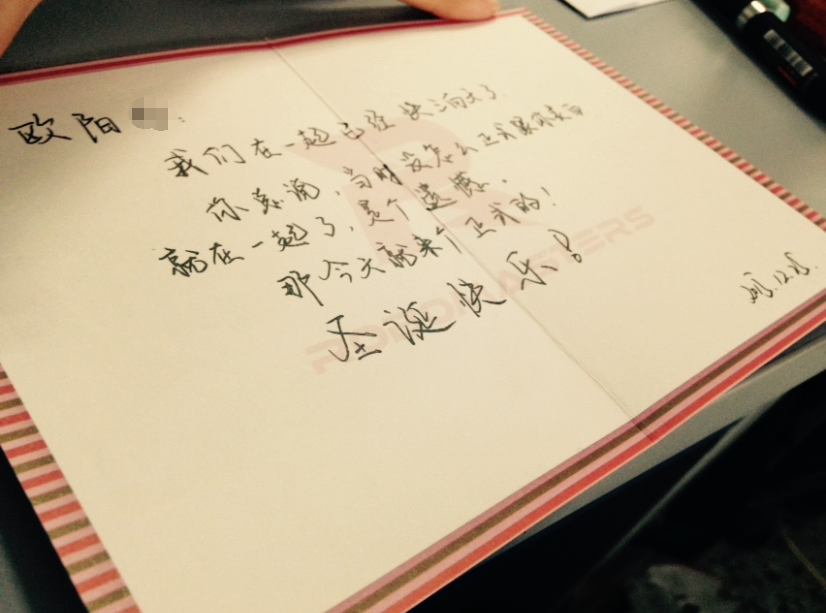 欧阳 :
我们在一起已经快三百天了
你总说，当时没怎么正式跟你表白
就在一起了，是个遗憾.
那今天就来个正式的！
圣诞快乐！
2015.12.25.
ROBOMASTERS